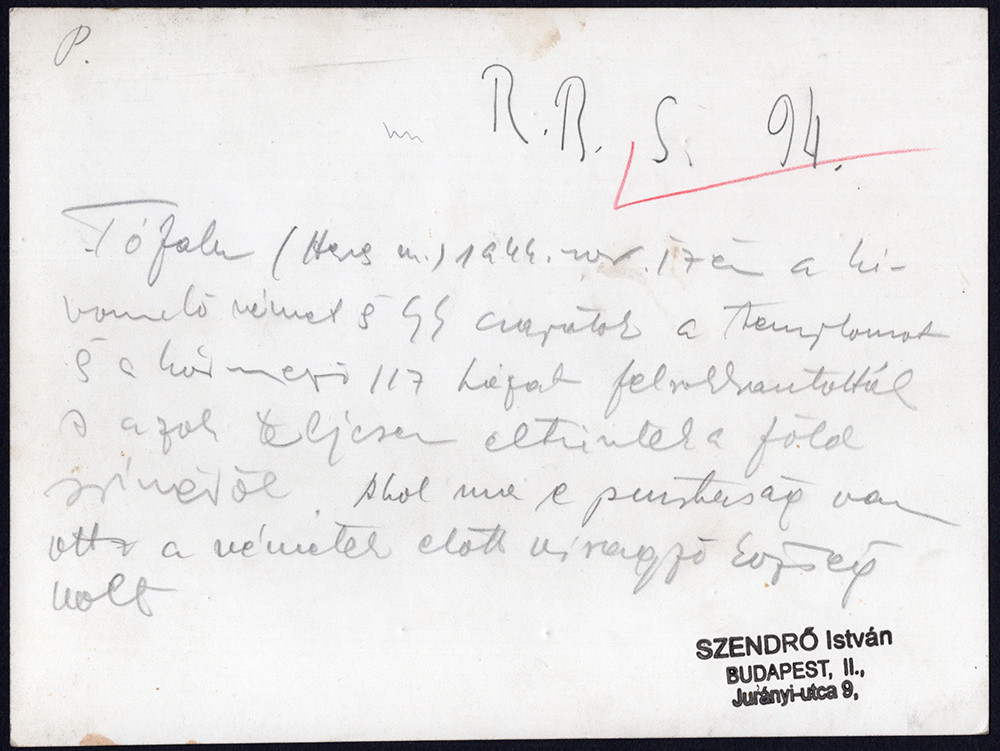 P.
R. R. S. 94.
Tófalu (Heves m.) 1944. nov. 17én a ki-
vonuló német és SS csapatok a templomot
és a környező 117 házat felrobbantották
s azok teljesen eltüntek a föld
színéről Ahol ma e pusztaság van
ott a németek előtt virágzó község
volt
SZENDRŐ István
BUDAPEST, II.,
Jurányi-utca 9,